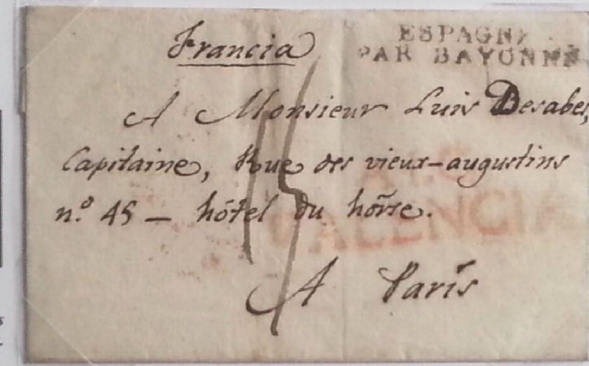 Francia
ESPAGNE
PAR BAYONNE
A Monsieur Luis Desabes,
Capitaine, Rue des vieux-augustins
n.º 45 — hôtel du
VALENCIA
A Paris
15